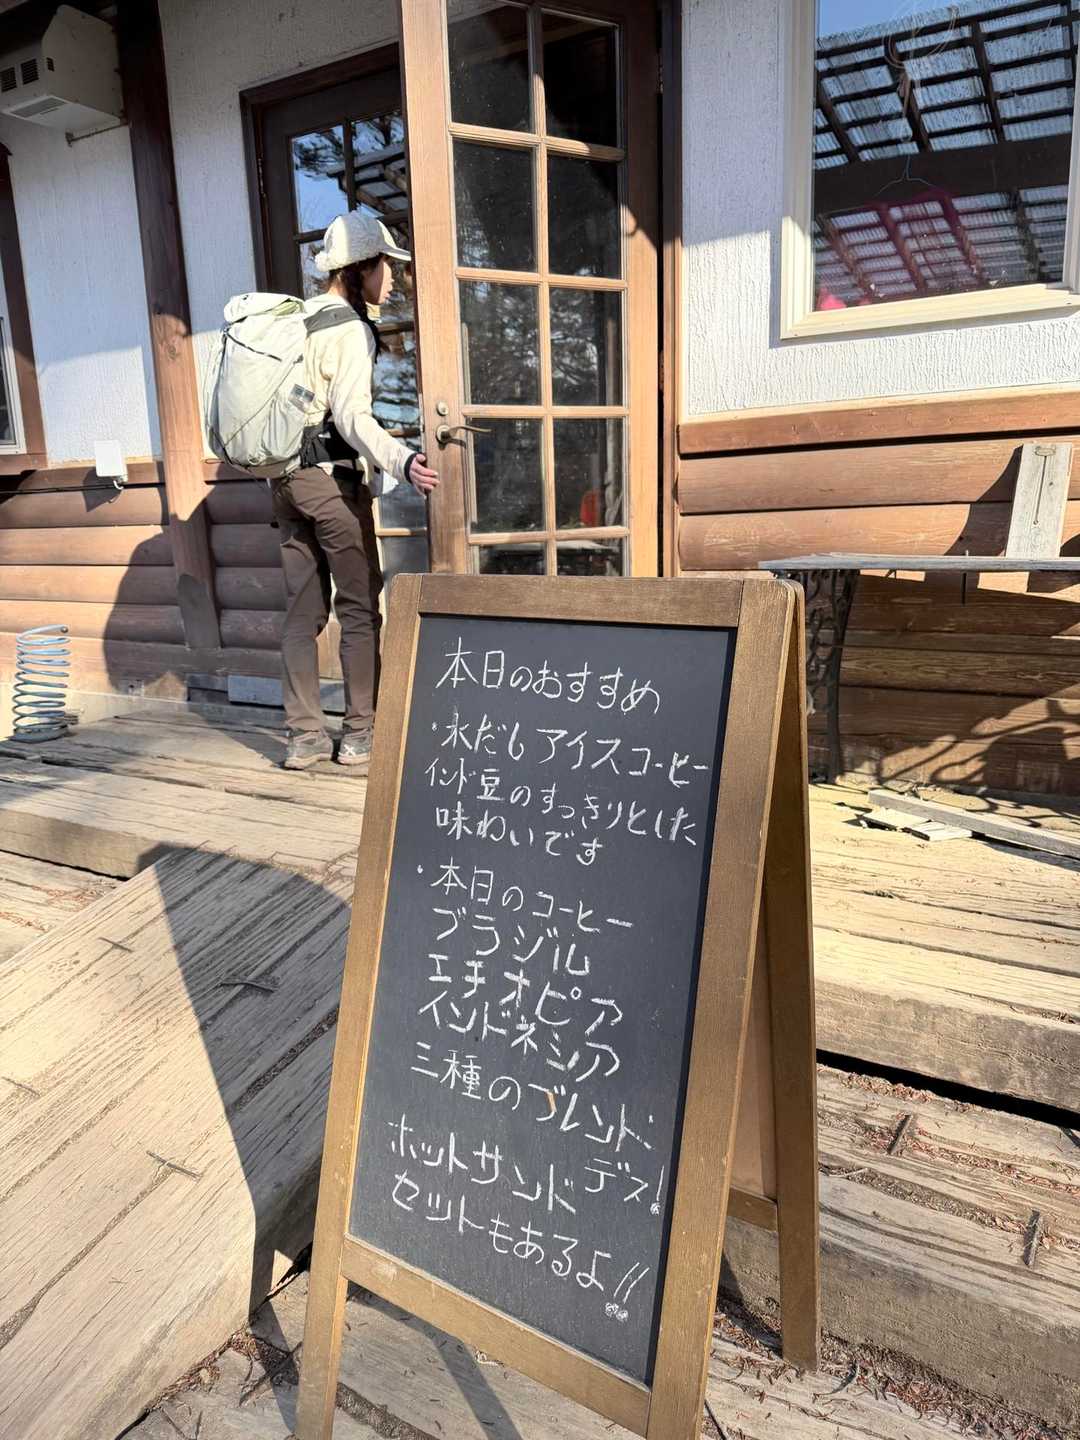 本日のおすすめ
・水だしアイスコーヒー
インド豆のすっきりとした
味わいです
・本日のコーヒー
ブラジル
エチオピア
インドネシア
三種のブレンド
デス!
ホットサンド
セットもあるよ!!